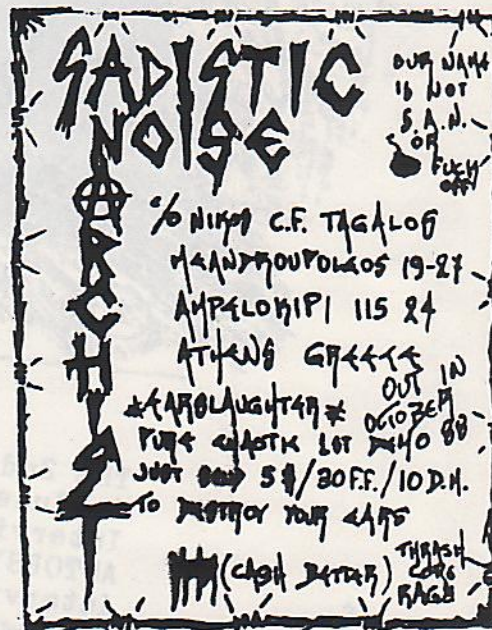 SADISTIC
NOISE
ANARCHIST
OUR NAME
IS NOT
S.A.N.
OR
FUCK
OFF!
c/o NIKOS C.F. TAGALOS
MEANDROUPOLEOS 19-27
AMPELOKIPI 115 24
ATHENS GREECE
*EARSLAUGHTER*
OUT IN
OCTOBER
PURE CHAOTIK 1ST DEMO 88
JUST 5$/30F.F./10D.M.
TO DESTROY YOUR EARS
(CASH BETTER)
THRASH
CORE
RAGE